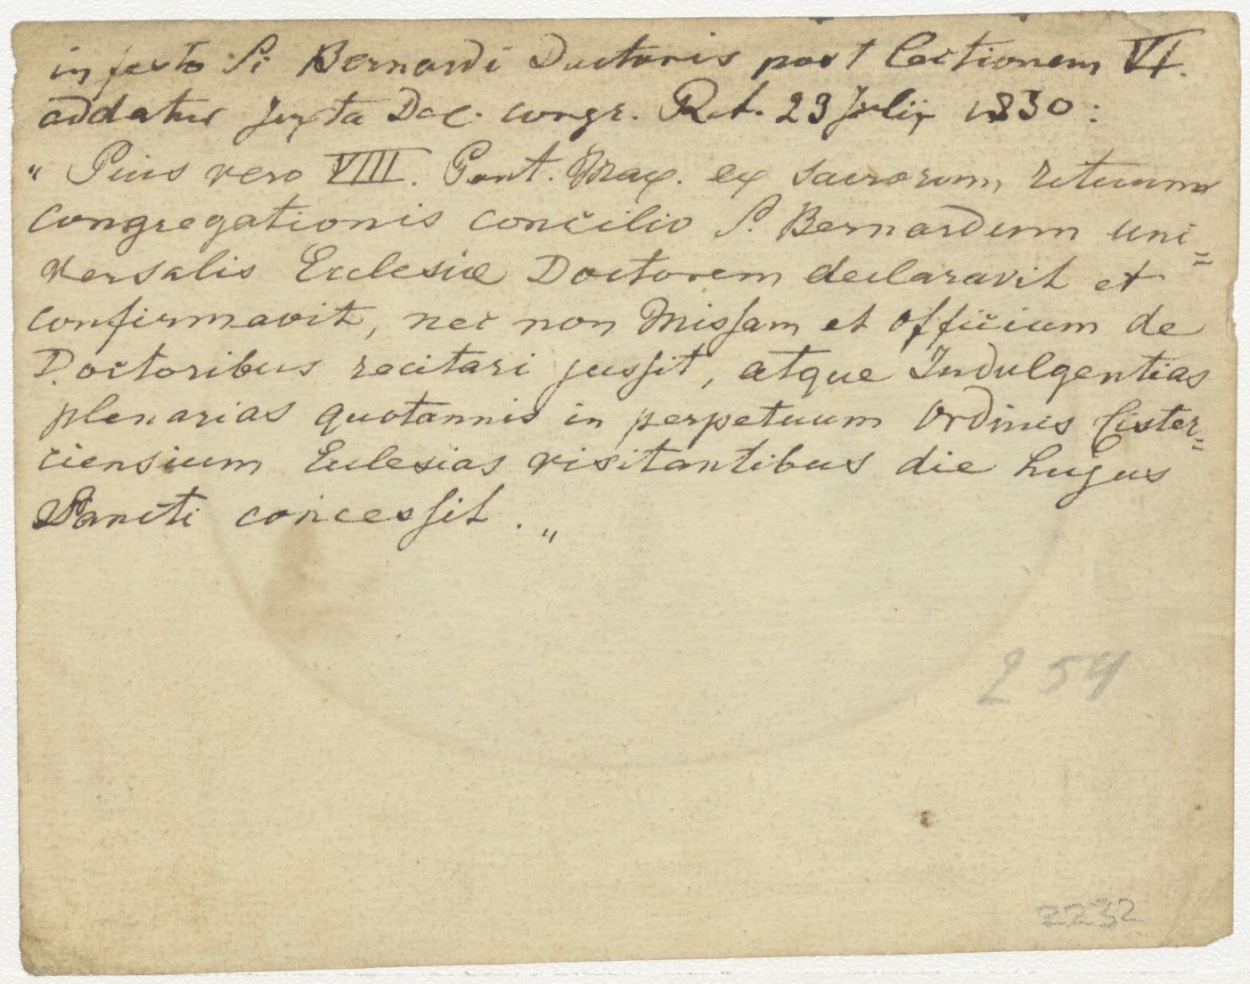 in festo Si Bernardi Doctoris post Lectionem VI.
addatur juxta Dec. congr. Rit. 23 Julii 1830:
" Pius vero VIII. Pont. Max. ex sacrorum rituum
congregationis concilio S. Bernardum uni=
versalis Ecclesiæ Doctorem declaravit et
confirmavit, nec non Missam et officium de
Doctoribus recitari jussit, atque Indulgentias
plenarias quotannis in perpetuum Ordinis Cister=
ciensium Eclesias visitantibus die hujus
Sancti concessit. "
254
2232